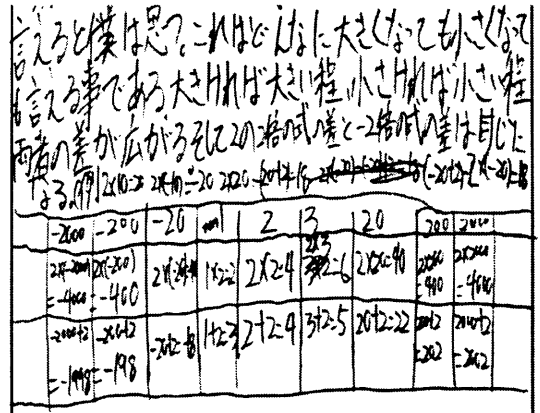 言えると僕は思う。これはどんなに大きくなっても小さくなって
も言える事である大きければ大きい程、小さければ小さい程
両者の差が広がるそして2の2倍の式の差と-2倍の式の差は同じに
なる。例 2×10=20 2×(-10)=-20
-2000 -200 -20 2 3 20 200 2000
2×(-2000)=-4000 2×(-200)=-400 1×2=2 2×2=4 2×3=6 2×20=40 2×200=400 2×2000=4000
-2000+2=-1998 -200+2=-198 -20+2=-18 1+2=3 2+2=4 3+2=5 20+2=22 200+2=202 2000+2=2002